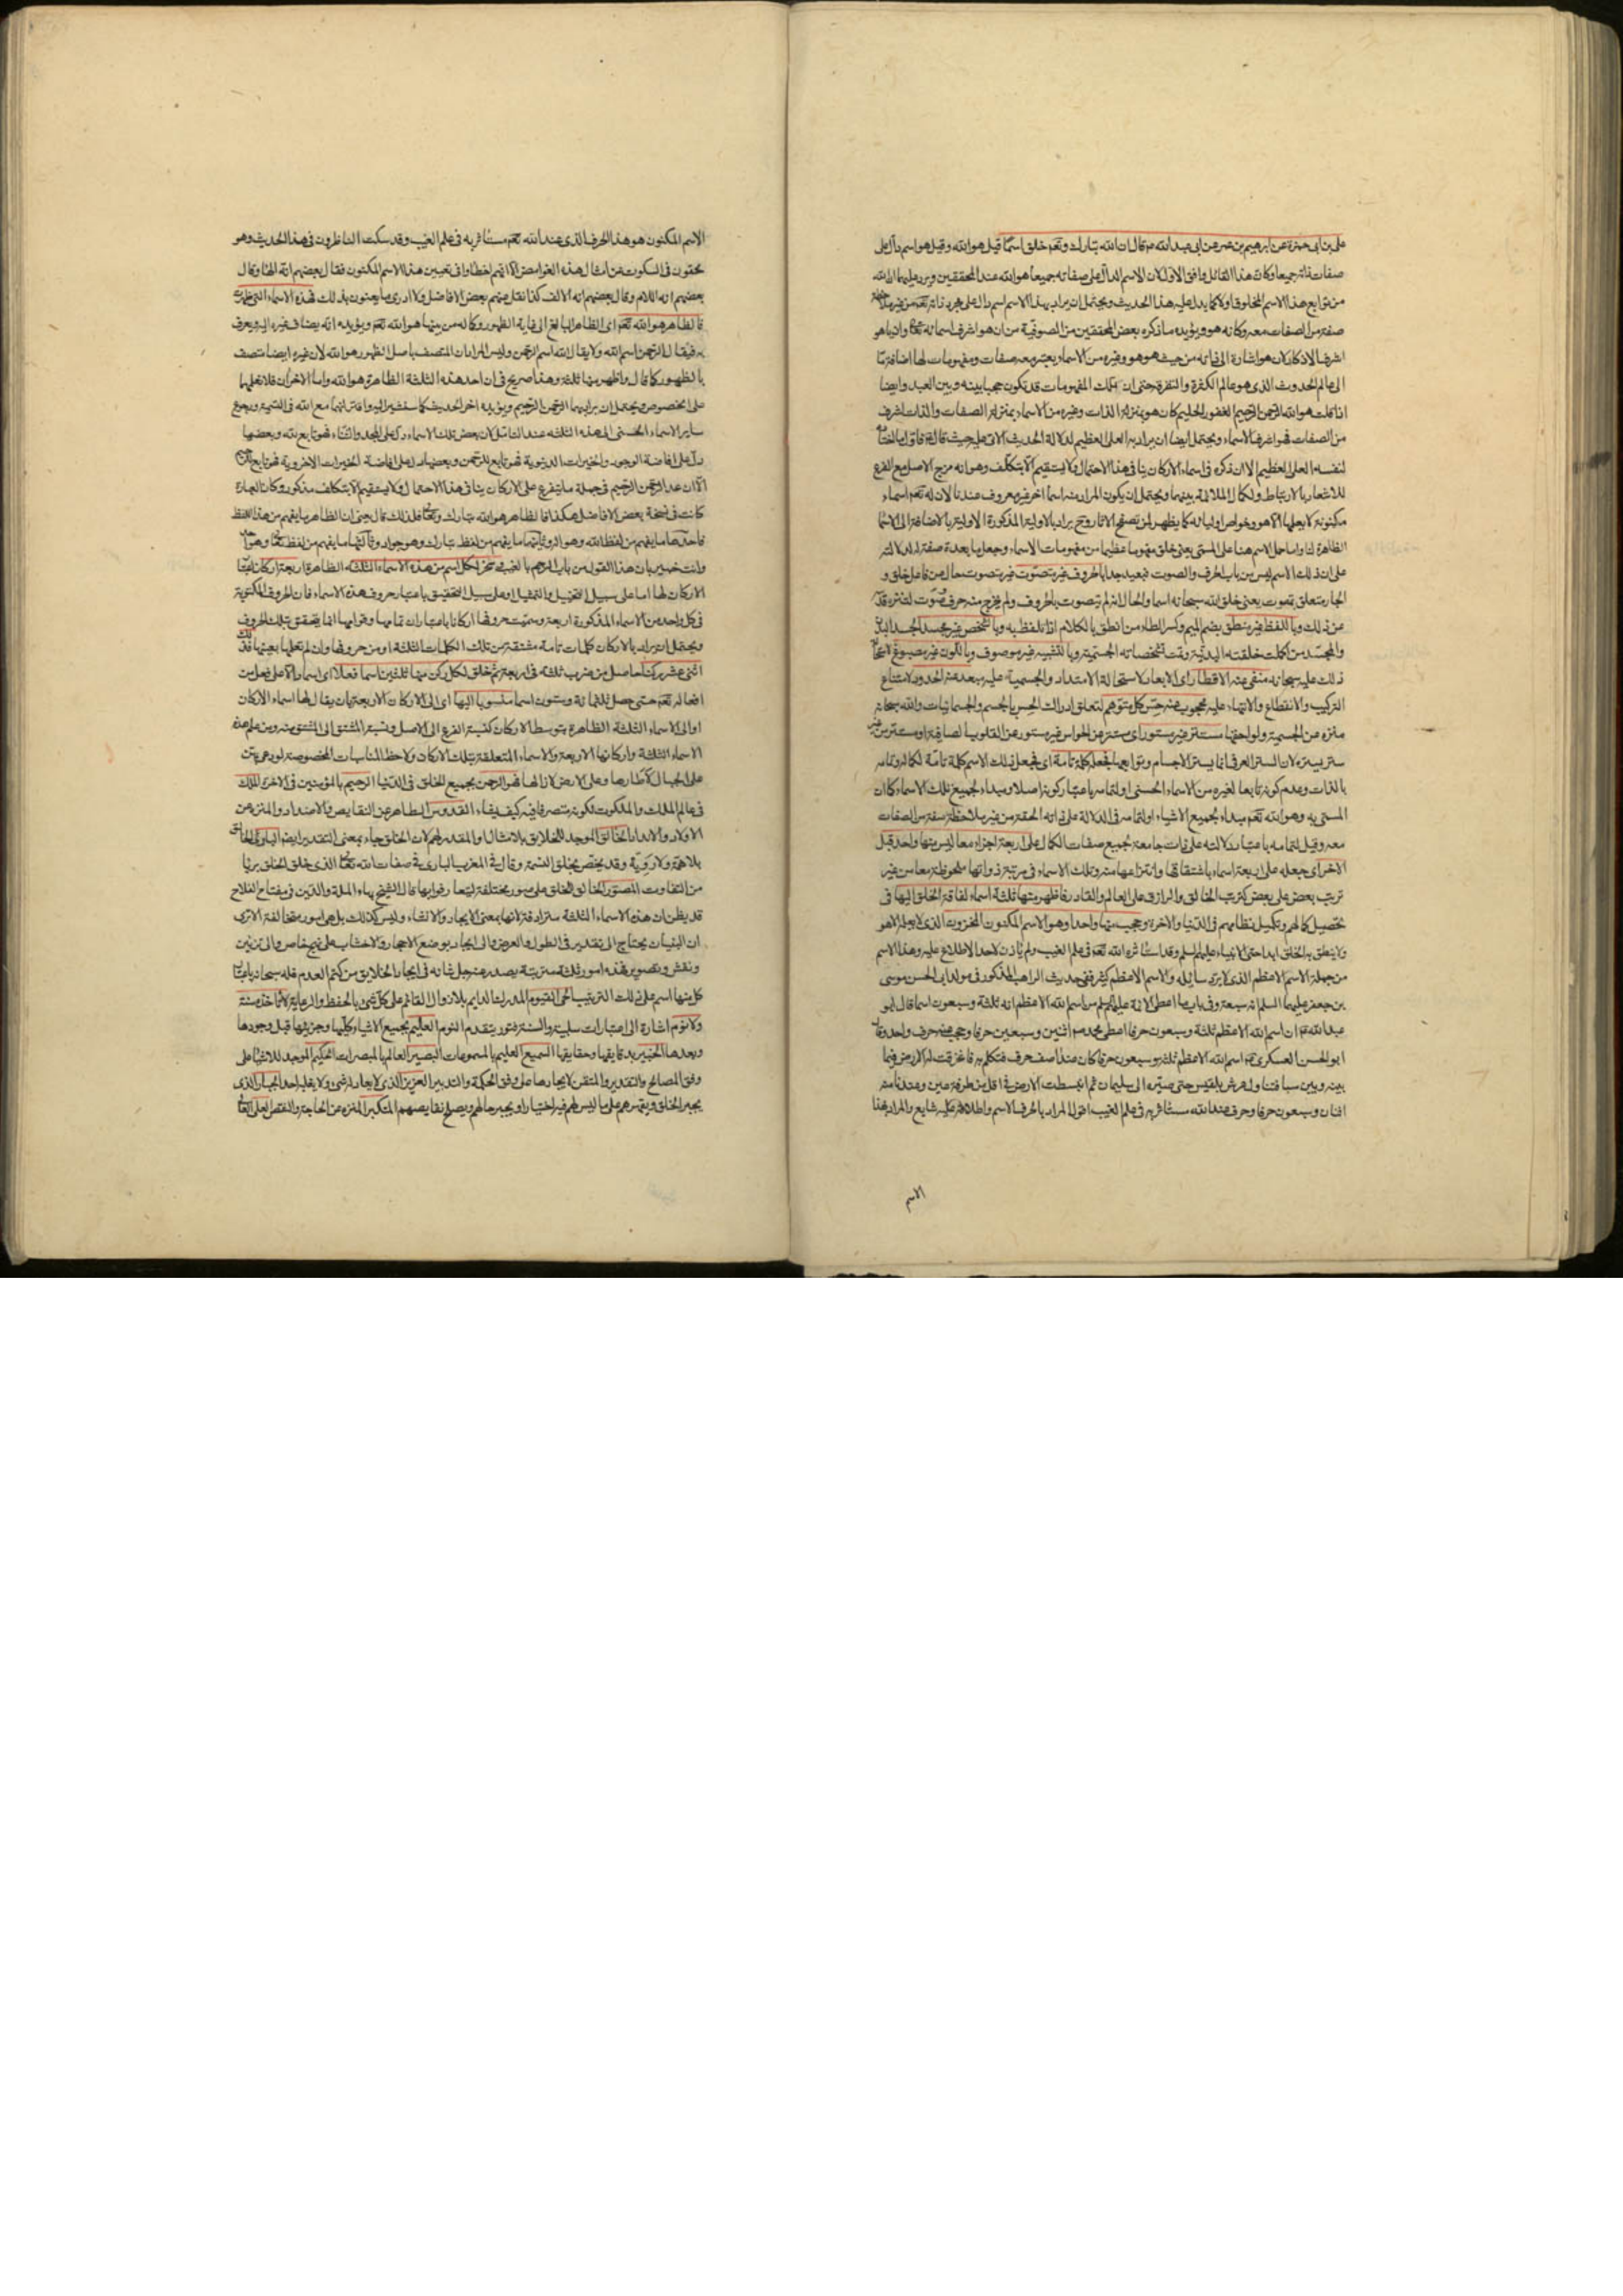 على بن ابى حمزة عن ابرهيم بن عمر عن ابى عبد الله عم قال ان الله تبارك وتعم خلق اسما قيل هو الله وقيل هو اسم دال على
صفات ذاته جميعا وكان هذا القائل وافق الاول لان الاسم الدال على صفاته جميعا هو الله عند المحققين ويرد عليهما ان الله
من توابع هذا الاسم المخلوق اولا كما يدل عليه هذا الحديث ويحتمل ان يراد بهذا الاسم اسم دال على مجرد ذاته تعم من غير ملاحظة
صفة من الصفات معه وكانه هو ويؤيده ما ذكره بعض المحققين من الصوفية من ان هو اشرف اسمائه تعالى وان يا هو
اشرف الاذكار لان هو اشارة الى ذاته من حيث هو هو وغيره من الاسماء يعتبر معه صفات ومفهومات لها اضافة ما
الى عالم الحدوث الذى هو عالم الكثرة والتفرقة حتى ان تلك المفهومات قد تكون حجبا بينه وبين العبد وايضا
اذا قلت هو الله الرحمن الرحيم الغفور الحليم كان هو بمنزلة الذات وغيره من الاسماء بمنزلة الصفات والذات اشرف
من الصفات فهو اشرف الاسماء ويحتمل ايضا ان يراد به العلى العظيم لدلالة الحديث الاتى عليه حيث قال فاول ما اختار
لنفسه العلى العظيم الا ان ذكره فى اسماء الاركان ينافى هذا الاحتمال ولا يستقيم الا بتكلف وهو انه مزج الاصل مع الفرع
للاشعار بالارتباط ولكمال الملائمة بينهما ويحتمل ان يكون المراد منه اسما اخر غير معروف عندنا لان له تعم اسماء
مكنونة لا يعلمها الا هو وخواص اوليائه كما يظهر لمن تصفح الاثار وح يراد بالاولية المذكورة الاولية بالاضافة الى الاسماء
الظاهرة لنا واما حمل الاسم هنا على المسمى يعنى خلق مفهوما عظيما من مفهومات الاسماء وجعل ما بعده صفة له للدلالة
على ان ذلك الاسم ليس من باب الحرف والصوت فبعيد جدا بالحروف غير متصوت غير متصوت حال من فاعل خلق و
الجار متعلق بمتصوت يعنى خلق الله سبحانه اسما والحال انه لم يتصوت بالحروف ولم يخرج منه حرف وصوت لتنزه قدسه
عن ذلك وباللفظ غير منطق بضم الميم وكسر الطاء من انطق بالكلام اذا تلفظ به وبالشخص غير مجسد الجسد البدن
والمجسد من اكملت خلقته البدنية وتمت تشخصاته الجسمية وبالتشبيه غير موصوف وباللون غير مصبوغ لاستحالة
ذلك عليه سبحانه منفى عنه الاقطار اى الابعاد لاستحالة الامتداد والجسمية عليه مبعد عنه الحدود لامتناع
التركيب والانقطاع والانتهاء عليه محجوب عنه حس كل متوهم لتعلق ادراك الحس بالجسم والجسمانيات والله سبحانه
منزه عن الجسمية ولواحقها مستتر غير مستور اى مستتر عن الحواس غير مستور عن القلوب الصافية او مستتر من غير
ستر يستره لان الستر العرفى انما يستر الاجسام وتوابعها فجعله كلمة تامة اى فجعل ذلك الاسم كلمة تامة لكماله وتمامه
بالذات وعدم كونه تابعا لغيره من الاسماء الحسنى او لتمامه باعتبار كونه اصلا ومبداء لجميع تلك الاسماء كما ان
المسمى به وهو الله تعم مبداء لجميع الاشياء او لتمامه فى الدلالة على ذاته الحقة من غير ملاحظة صفة من الصفات
معه وقيل لتمامه باعتبار دلالته على ذات جامعة لجميع صفات الكمال على اربعة اجزاء معا ليس منها واحد قبل
الاخر اى جعله على اربعة اسماء باشتقاقها وانتزاعها منه وتلك الاسماء فى مرتبة ذواتها ملحوظة معا من غير
ترتب بعض على بعض كترتب الخالق والرازق على العالم والقادر فاظهر منها ثلثة اسماء لفاقة الخلق اليها فى
تحصيل كمالهم وتكميل نظامهم فى الدنيا والاخرة وحجب منها واحدا وهو الاسم المكنون المخزون الذى لا يعلمه الا هو
ولا ينطق به الخلق ابدا حتى الانبياء عليهم السلم وقد استأثره الله تعم فى علم الغيب ولم يأذن لاحد الاطلاع عليه وهذا الاسم
من جملة الاسم الاعظم الذى لا يرد سائله والاسم الاعظم كثير ففى حديث الراهب المذكور فى مولد ابى الحسن موسى
بن جعفر عليهما السلم انه سبعة وفى باب ما اعطى الائمة عليهم السلم من اسم الله الاعظم انه ثلثة وسبعون اسما قال ابو
عبد الله عم ان اسم الله الاعظم ثلثة وسبعون حرفا اعطى محمد ص اثنين وسبعين حرفا وحجب عنه حرف واحد وقال
ابو الحسن العسكرى عم اسم الله الاعظم ثلثة وسبعون حرفا كان عند اصف حرف فتكلم به فانخرقت له الارض فيما
بينه وبين سبا فتناول عرش بلقيس حتى صيره الى سليمان ثم انبسطت الارض فى اقل من طرفة عين وعندنا منه
اثنان وسبعون حرفا وحرف عند الله مستأثر به فى علم الغيب اقول المراد بالحرف الاسم واطلاقه عليه شايع والمراد بهذا
الاسم
الاسم المكنون هو هذا الحرف الذى عند الله تعم مستأثر به فى علم الغيب وقد سكت الناظرون فى هذا الحديث وهو
محقون فى السكوت عن امثال هذه الغوامض الا انهم اخطاوا فى تعيين هذا الاسم المكنون فقال بعضهم انه الهاء وقال
بعضهم انه اللام وقال بعضهم انه الالف كذا نقل عنهم بعض الافاضل ولا ادرى ما يعنون بذلك فهذه الاسماء التى ظهرت
فالظاهر هو الله تعم اى الظاهر البالغ الى غاية الظهور وكماله من بينها هو الله تعم ويؤيده انه يضاف غيره اليه ويعرف
به فيقال الرحمن اسم الله ولا يقال الله اسم الرحمن وليس المراد ان المتصف باصل الظهور هو الله لان غيره ايضا متصف
بالظهور كما قال واظهر منها ثلثة وهذا صريح فى ان احد هذه الثلثة الظاهرة هو الله واما الاخران فلا نعلمهما
على الخصوص ويحتمل ان يراد بهما الرحمن الرحيم ويؤيده اخر الحديث كما سنشير اليه واقترانهما مع الله فى التسمية ورجوع
ساير الاسماء الحسنى الى هذه الثلثة عند التامل لان بعض تلك الاسماء دل على المجد والثناء فهو تابع لله وبعضها
دل على افاضة الوجود والخيرات الدنيوية فهو تابع للرحمن وبعضها دل على افاضة الخيرات الاخروية فهو تابع للرحيم
الا ان عد الرحمن الرحيم فى جملة ما يتفرع على الاركان ينافى هذا الاحتمال ولا يستقيم الا بتكلف مذكور وكان العبارة
كانت فى نسخة بعض الافاضل هكذا فالظاهر هو الله تبارك وتعالى فلذلك قال يعنى ان الظاهر ما يفهم من هذا اللفظ
فاحدها ما يفهم من لفظ الله وهو اله وثانيها ما يفهم من لفظ تبارك وهو جواد وثالثها ما يفهم من لفظ تعالى وهو
وانت خبير بان هذا القول من باب الرجم بالغيب وسخر لكل اسم من هذه الاسماء الثلثة الظاهرة اربعة اركان
الاركان لها اما على سبيل التخييل والتمثيل او على سبيل التحقيق باعتبار حروف هذه الاسماء فان الحروف المكتوبة
فى كل واحد من الاسماء المذكورة اربعة وسميت حروفها اركانا باعتبار ان تمامها وقوامها انما يتحقق بتلك الحروف
ويحتمل ان يراد بالاركان كلمات تامة مشتقة من تلك الكلمات الثلثة او من حروفها وان لم نعلمها بعينها فذلك
اثنى عشر ركنا حاصل من ضرب ثلثة فى اربعة ثم خلق لكل ركن منها ثلثين اسما فعلا اى اسما دالا على فعل من
افعاله تعم حتى حصل ثلثمائة وستون اسما منسوبا اليها اى الى الاركان الاربعة بان يقال لها اسماء الاركان
او الى الاسماء الثلثة الظاهرة بتوسط الاركان كنسبة الفرع الى الاصل ونسبة المشتق الى المشتق منه ومن علم هذه
الاسماء الثلثة واركانها الاربعة والاسماء المتعلقة بتلك الاركان ولاحظ المناسبات المخصوصة لو دعى بهن
على الجبال لاطارها وعلى الارض لازالها فهو الرحمن بجميع الخلق فى الدنيا الرحيم بالمؤمنين فى الاخرة الملك
فى عالم الملك والملكوت لكونه متصرفا فيه كيف يشاء القدوس الطاهر عن النقايص والاضداد والمنزه عن
الاولاد والانداد الخالق الموجد للخلايق بلا مثال والمقدر لهم لان الخلق جاء بمعنى التقدير ايضا البارئ الخالق
بلا همة ولا روية وقد يختص بخلق النسمة وقال فى المغرب البارى فى صفات الله تعالى الذى خلق الخلق بريا
من التفاوت المصور الخالق للخلق على صور مختلفة ليتعارفوا بها قال الشيخ بهاء الملة والدين فى مفتاح الفلاح
قد يظن ان هذه الاسماء الثلثة مترادفة لانها بمعنى الايجاد والانشاء وليس كذلك بل هى امور متخالفة الا ترى
ان البنيان يحتاج الى تقدير فى الطول والعرض والى ايجاد بوضع الاحجار والاخشاب على نهج خاص والى تزيين
ونقش وتصوير فهذه امور ثلثة مترتبة يصدر عنه جل شانه فى ايجاد الخلايق من كتم العدم فله سبحانه باعتبار
كل منها اسم على ذلك الترتيب الحى القيوم المدرك الدايم بلا زوال القائم على كل شئ بالحفظ والرعاية لا تاخذه سنة
ولا نوم اشارة الى اعتبارات سلبية والسنة فتور يتقدم النوم العليم بجميع الاشياء كليها وجزئيها قبل وجودها
وبعدها الخبير بدقايقها وحقايقها السميع العليم بالمسموعات البصير العالم بالمبصرات الحكيم الموجد للاشياء على
وفق المصالح والتقدير والمتقن لايجادها على وفق الحكمة والتدبير العزيز الذى لا يعادله شئ ولا يغلبه احد الجبار الذى
يجبر الخلق ويقهرهم على ما ليس لهم فيه اختيار او يجبر حالهم ويصلح نقايصهم المتكبر المنزه عن الحاجة والنقص العلى